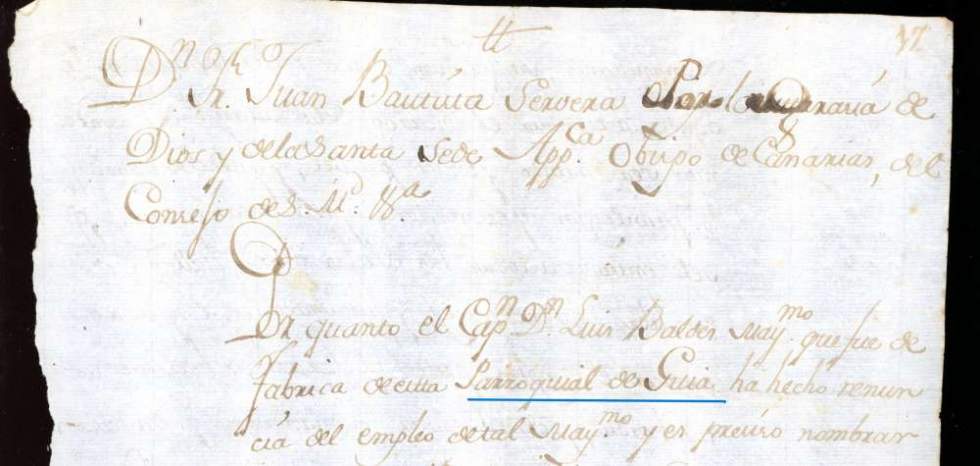 tt
Dn. Fr. Juan Bautista Servera Por la gracia de
Dios, y de la Santa Sede Appca. Obispo de Canarias, del
Consejo de S. M. &a.
Por quanto el Capn. Dn. Luis Baldes Maymo. que fue de
fabrica de esta Parroquial de Guia ha hecho renun
cia del empleo de tal Maymo. y es preciso nombrar